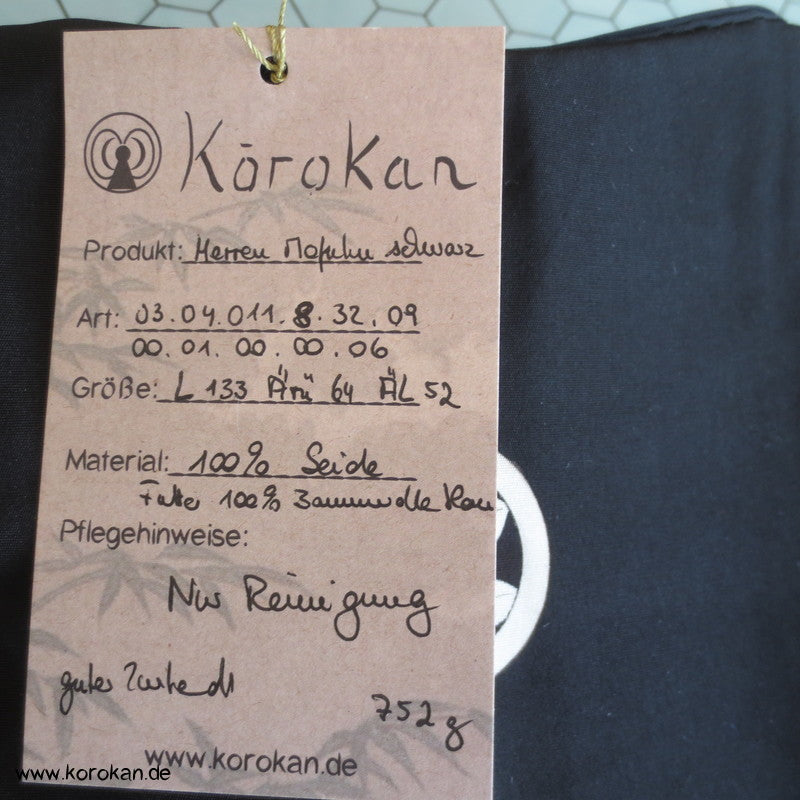 Kōrokan
Produkt: Herren Mofuku schwarz
Art: 03.04.011.8.32.09
00.01.00.00.06
Größe: L 133 Ärü 64 ÄL 52
Material: 100% Seide
Futter 100% Baumwolle
Pflegehinweise:
Nur Reinigung
guter Zustand
752 g
www.korokan.de
www.korokan.de